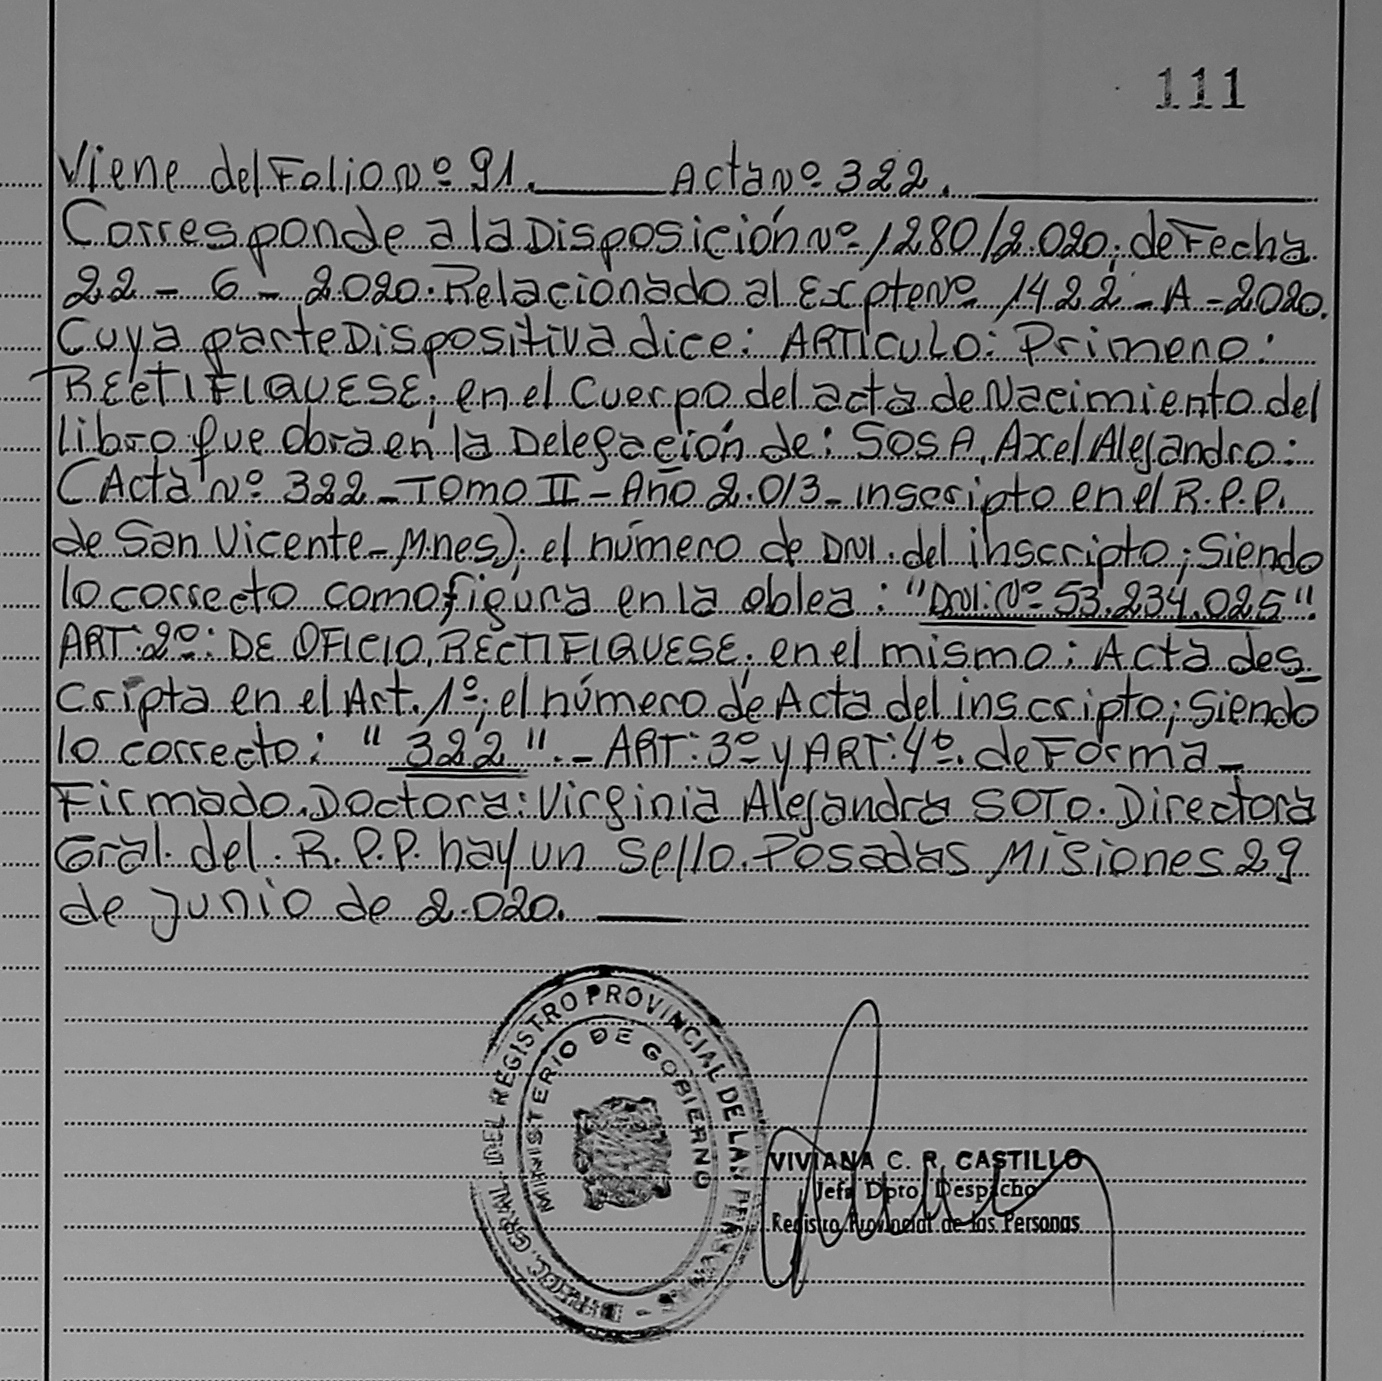 111
Viene del Folio Nº 91. Acta Nº 322.
Corresponde a la Disposición Nº 1280/2.020, de Fecha
22 - 6 - 2.020. Relacionado al Expte Nº 1422 - A - 2020.
Cuya parte Dispositiva dice: ARTICULO: Primero:
RECTIFIQUESE; en el Cuerpo del acta de Nacimiento del
Libro que obra en la Delegación de: SOSA, Axel Alejandro:
(Acta Nº 322 - Tomo II - Año 2.013 - inscripto en el R.P.P.
de San Vicente - Mnes); el número de DNI. del inscripto; Siendo
lo correcto como figura en la oblea: "DNI: Nº 53.234.025"
ART: 2º: DE OFICIO, RECTIFIQUESE; en el mismo: Acta des_
cripta en el Art. 1º; el número de Acta del inscripto; Siendo
lo correcto: " 322 ". - ART: 3º y ART: 4º. de Forma _
Firmado. Doctora: Virginia Alejandra SOTO. Directora
Gral. del. R.P.P. hay un Sello. Posadas Misiones 29
de Junio de 2.020.
DIRECC. GRAL. DEL REGISTRO PROVINCIAL DE LAS PERSONAS -
MINISTERIO DE GOBIERNO
VIVIANA C. R. CASTILLO
Jefa Dpto Despacho
Registro Provincial de las Personas